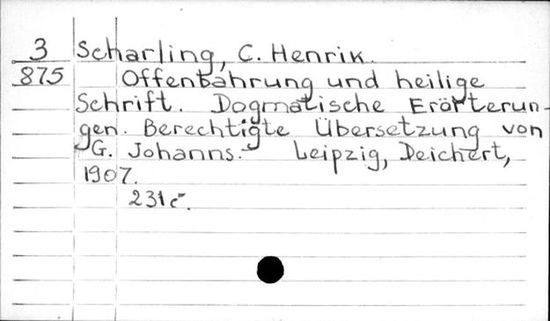 3 Scharling, C. Henrik.
875 Offenbahrung und heilige
Schrift. Dogmatische Erörterun-
gen. Berechtigte Übersetzung von
G. Johanns.- Leipzig, Deichert,
1907.
231 c.